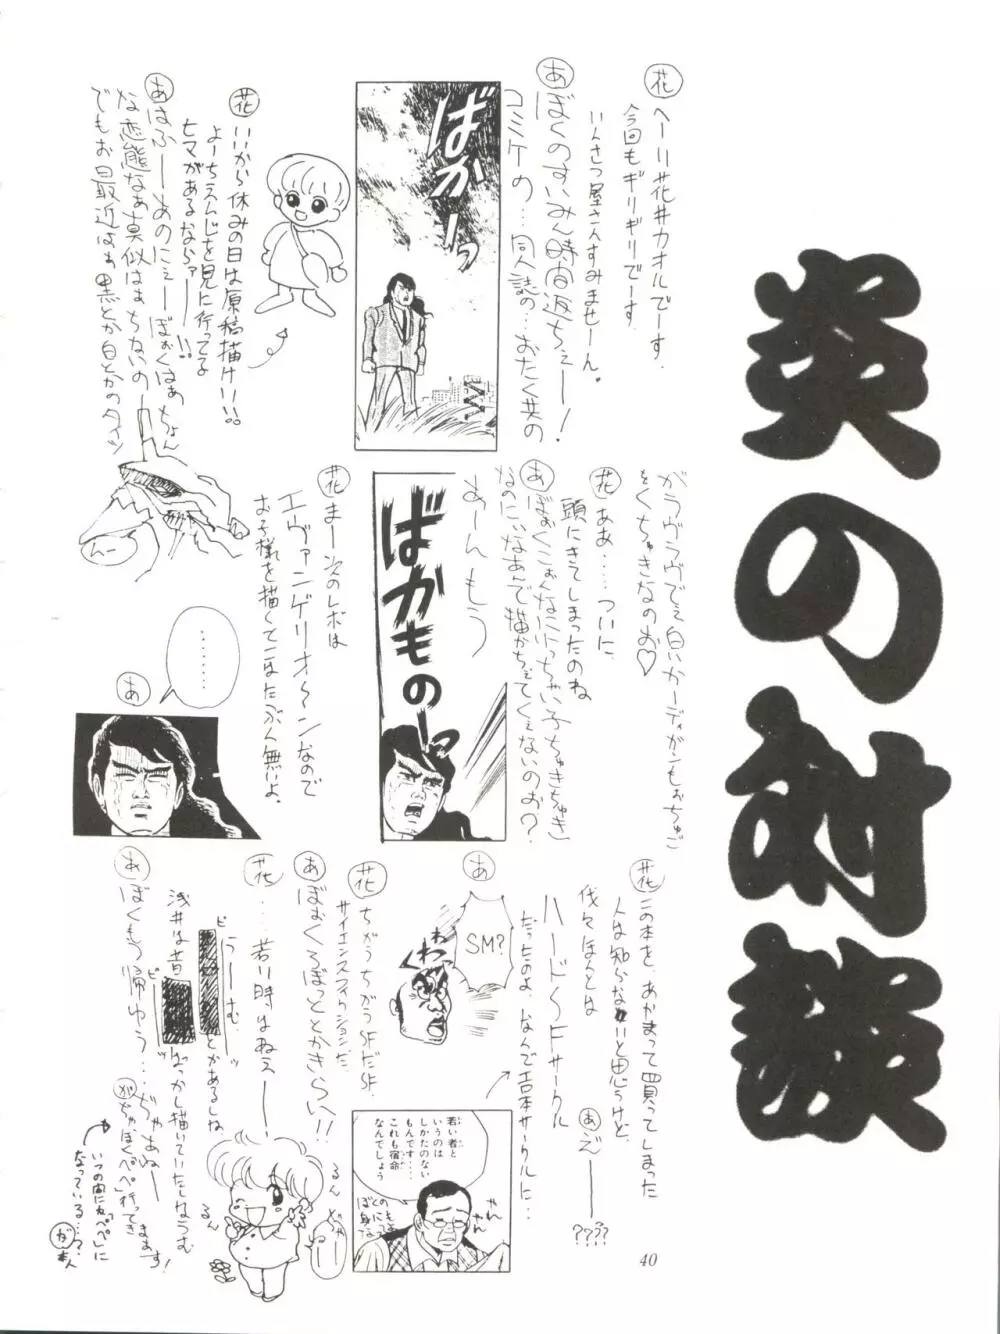 炎の対談
花 へーい花井カオルでーす。
今回もギリギリでーす
いんさつ屋さんすみませーん。
あ ぼくのすいみん時間返ちぇー!
コミケの…同人誌の…おたく共の
ばかーっ
花 いいから休みの日は原稿描け!!!
よーちえんじを見に行ってる
ヒマがあるならァー!!
あ はふーあのにぇーぼぉくはぁちょん
な変態なぁ真似はぁちないの
でもお最近はぁ黒とか白とかのタイツ
がラヴラヴでぇ白いカーディガンもぉちゅご
をくちゅきなのお♡
花 ああ……ついに
頭にきてしまったのね
あ ぼぉくこぉんなにいっちゃい子ちゅきちゅき
なのにいなあんで描かちぇてくぇないのお?
あーんもう
ばかものーっ
花 まー次のレボは
エヴァンゲリオ〜ンなので
お子様を描くことはたぶん無いよ。
んー
あ
………
花 この本を、あやまって買ってしまった
人は知らないと思うけど、
僕々ほんとは
あぞー????
ハード〜SFサークル
だったのよ、なんでエロ本サークルに…
あ
SM?
くわっ
花 ちがうちがうSFだSF。
サイエンスフィクションだ
若い者と
いうのは
しかたのない
もんです…
これも宿命
なんでしょう
あ ぼぉくろぼっととかきらい!!
花 …若い時はねえー
ピーうーむ。とかあるしね
浅井は昔ピーッばっかし描いていたしなうむ
あ ぼくもう帰ゆう…ぢゃあねー
がちゃぼくペペ行ってきまぁす!
いつの間にか「ペペ」に
なっている…?
が 本人
るん
るん
ぢゃーねー
40